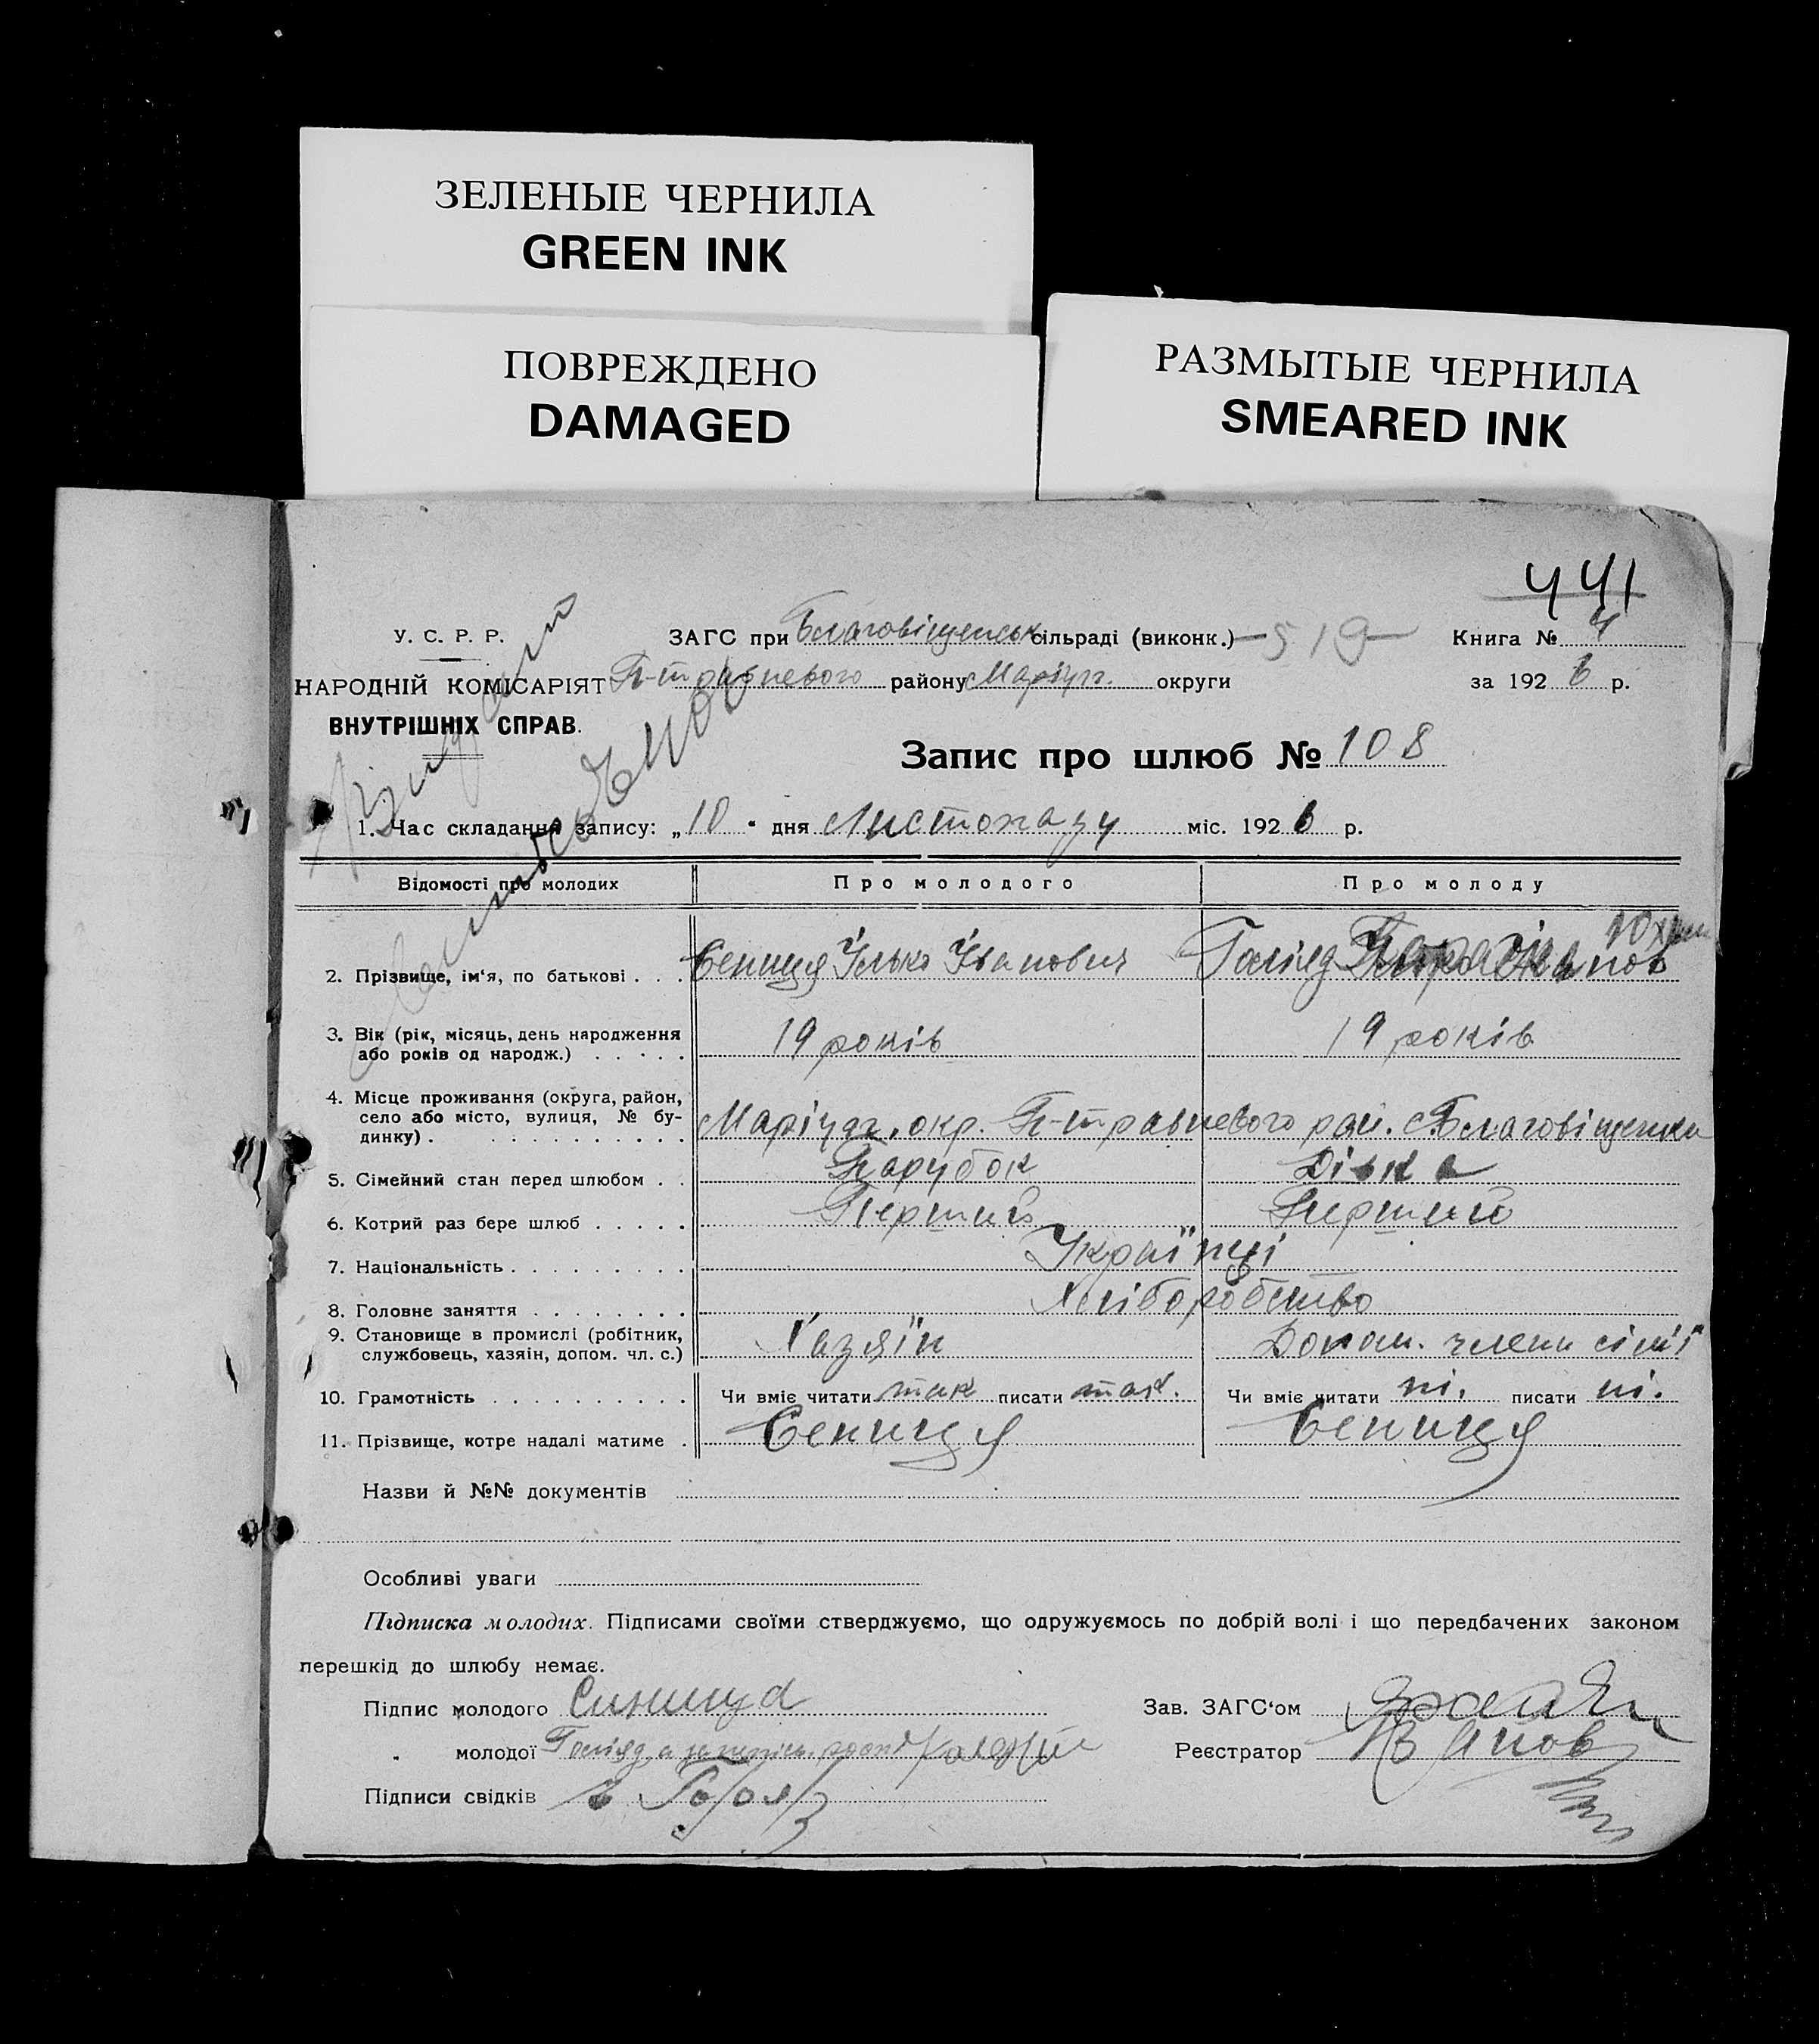 ЗЕЛЕНЫЕ ЧЕРНИЛА
GREEN INK
ПОВРЕЖДЕНО
DAMAGED
РАЗМЫТЫЕ ЧЕРНИЛА
SMEARED INK
441
У. С. Р. Р.
НАРОДНІЙ КОМІСАРІЯТ
ВНУТРІШНІХ СПРАВ.
ЗАГС при Благовіщенськ сільраді (виконк.) —519—
П-травневого району Маріуп. округи
Книга № 4
за 1926 р.
Запис про шлюб № 108
1. Час складання запису: „10“ дня Листопаду міс. 1926 р.
Відомості про молодих Про молодого Про молоду
2. Прізвище, ім‘я, по батькові . . . Сениця Ілько Іванович
3. Вік (рік, місяць, день народження
або років од народж.) . . . . . 19 років 19 років
4. Місце проживання (округа, район,
село або місто, вулиця, № бу-
динку) . . . . . . . . . . . Маріуп. окр. П-травневого рай. с. Благовіщенка
5. Сімейний стан перед шлюбом . . Парубок Дівка
6. Котрий раз бере шлюб . . . . . Перший Перший
7. Національність . . . . . . . . . Українці
8. Головне заняття . . . . . . . . Хліборобство
9. Становище в промислі (робітник,
службовець, хазяін, допом. чл. с.) Хазяїн Допом. члени сімї
10. Грамотність . . . . . . . . . . Чи вміє читати так писати так. Чи вміє читати ні. писати ні.
11. Прізвище, котре надалі матиме . Сениця Сениця
Назви й №№ документів
Особливі уваги
Підписка молодих. Підписами своїми стверджуємо, що одружуємось по добрій волі і що передбачених законом
перешкід до шлюбу немає.
Підпис молодого Синиця
Зав. ЗАГС‘ом
„ молодої
Реєстратор Іванов
Підписи свідків